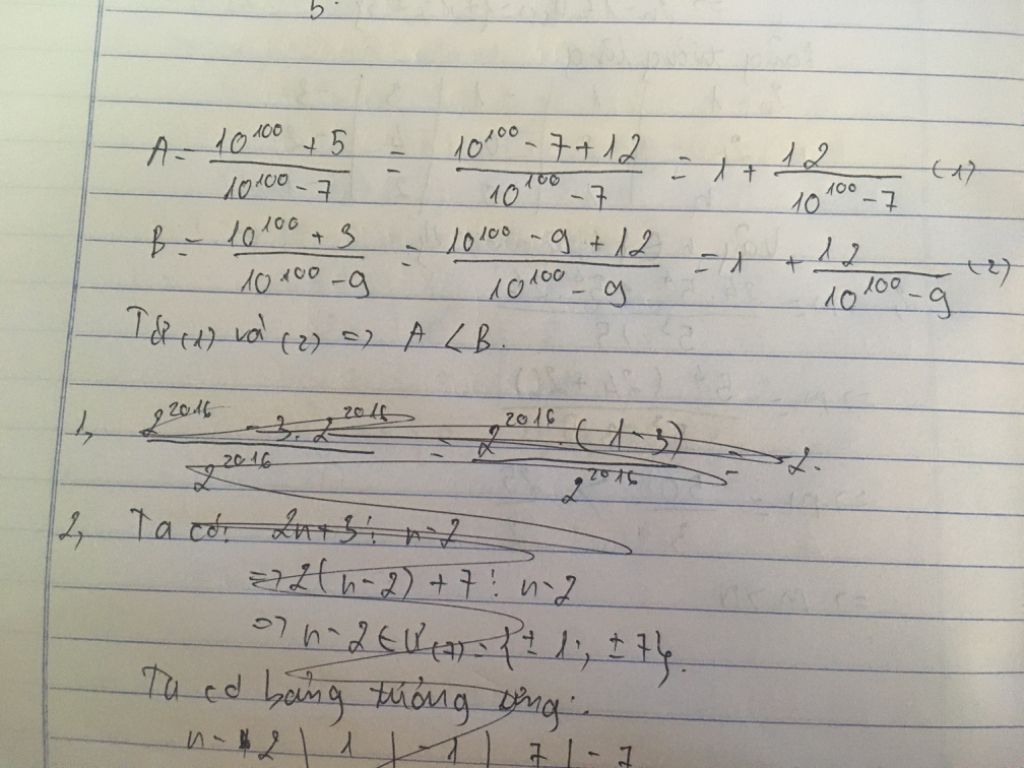 5.
A = \frac{10^{100} + 5}{10^{100} - 7} = \frac{10^{100} - 7 + 12}{10^{100} - 7} = 1 + \frac{12}{10^{100} - 7} (1)
B = \frac{10^{100} + 3}{10^{100} - 9} = \frac{10^{100} - 9 + 12}{10^{100} - 9} = 1 + \frac{12}{10^{100} - 9} (2)
Từ (1) và (2) => A < B.
1, \frac{2^{2016} - 3.2^{2016}}{2^{2016}} = \frac{2^{2016}.(1-3)}{2^{2016}} = -2.
2, Ta có: 2n+3 ⋮ n-2
=> 2(n-2) + 7 ⋮ n-2
=> n-2 ∈ Ư(7) = {±1; ±7}.
Ta có bảng tương ứng:
n-2 | 1 | -1 | 7 | -7